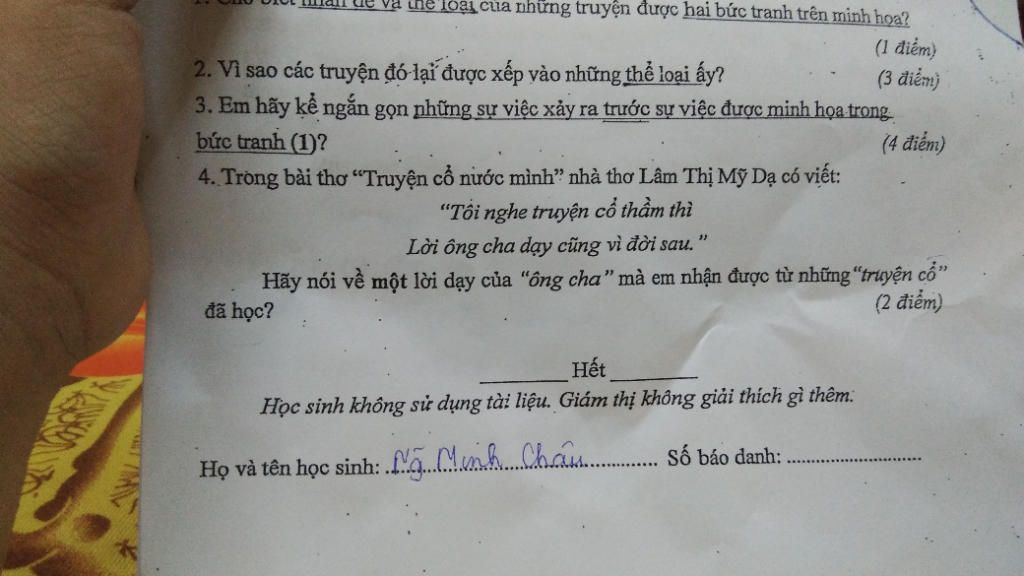 1. Cho biết nhan đề và thể loại của những truyện được hai bức tranh trên minh họa?
(1 điểm)
2. Vì sao các truyện đó lại được xếp vào những thể loại ấy?
(3 điểm)
3. Em hãy kể ngắn gọn những sự việc xảy ra trước sự việc được minh họa trong
bức tranh (1)?
(4 điểm)
4. Trong bài thơ “Truyện cổ nước mình” nhà thơ Lâm Thị Mỹ Dạ có viết:
“Tôi nghe truyện cổ thầm thì
Lời ông cha dạy cũng vì đời sau.”
Hãy nói về một lời dạy của “ông cha” mà em nhận được từ những “truyện cổ”
đã học?
(2 điểm)
Hết
Học sinh không sử dụng tài liệu. Giám thị không giải thích gì thêm.
Họ và tên học sinh: Ng Minh Châu Số báo danh: